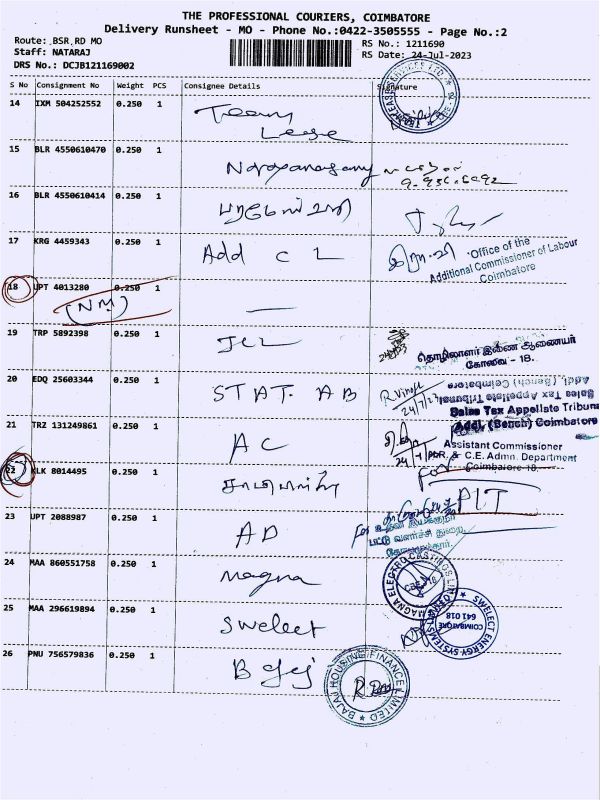 THE PROFESSIONAL COURIERS, COIMBATORE
Delivery Runsheet - MO - Phone No.:0422-3505555 - Page No.:2
Route: BSR RD MO
RS No.: 1211690
Staff: NATARAJ
RS Date: 24-Jul-2023
DRS No.: DCJB121169002
S No Consignment No Weight PCS Consignee Details Signature
14 IXM 504252552 0.250 1 Team
Lease
15 BLR 4550610470 0.250 1 Narayanasamy
16 BLR 4550610414 0.250 1
17 KRG 4459343 0.250 1 Add C L
Office of the
Additional Commissioner of Labour
Coimbatore
18 UPT 4013280 0.250 1
(NM)
19 TRP 5892398 0.250 1 JCL
தொழிலாளர் இணை ஆணையர்
கோவை - 18.
20 EDQ 25603344 0.250 1 STAT. AB
Addl. (Bench) Coimbatore
Sales Tax Appellate Tribunal
Sales Tax Appellate Tribuna
Addl. (Bench) Coimbatore
21 TRZ 131249861 0.250 1 AC
Assistant Commissioner
& C.E. Admn. Department
Coimbatore-18.
22 KLK 8014495 0.250 1
PIT
23 UPT 2088987 0.250 1 AD
24 MAA 860551758 0.250 1 Magna
MAGNA ELECTRO CASTINGS LIMITED
25 MAA 296619894 0.250 1 Swelect
SWELECT ENERGY SYSTEMS
COIMBATORE
641 018
26 PNU 756579836 0.250 1 Bajaj
BAJAJ HOUSING FINANCE LIMITED